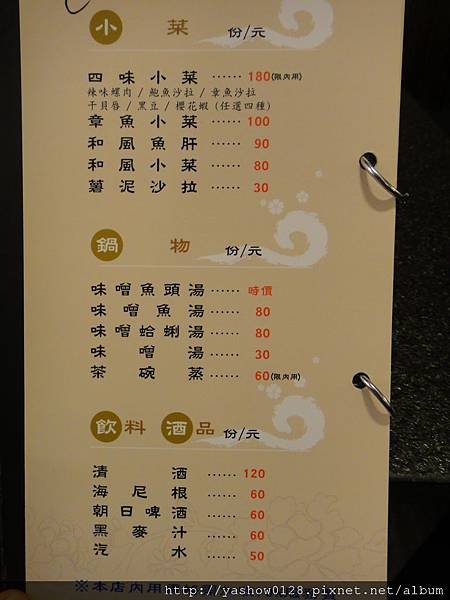 小菜 份/元
四味小菜 ...... 180(限內用)
辣味螺肉 / 鮑魚沙拉 / 章魚沙拉
干貝唇 / 黑豆 / 櫻花蝦 (任選四種)
章魚小菜 ...... 100
和風魚肝 ...... 90
和風小菜 ...... 80
薯泥沙拉 ...... 30
鍋物 份/元
味噌魚頭湯 ...... 時價
味噌魚湯 ...... 80
味噌蛤蜊湯 ...... 80
味噌湯 ...... 30
茶碗蒸 ...... 60(限內用)
飲料 酒品 份/元
清酒 ...... 120
海尼根 ...... 60
朝日啤酒 ...... 60
黑麥汁 ...... 60
汽水 ...... 50
※本店內用
http://yashow0128.pixnet.net/album